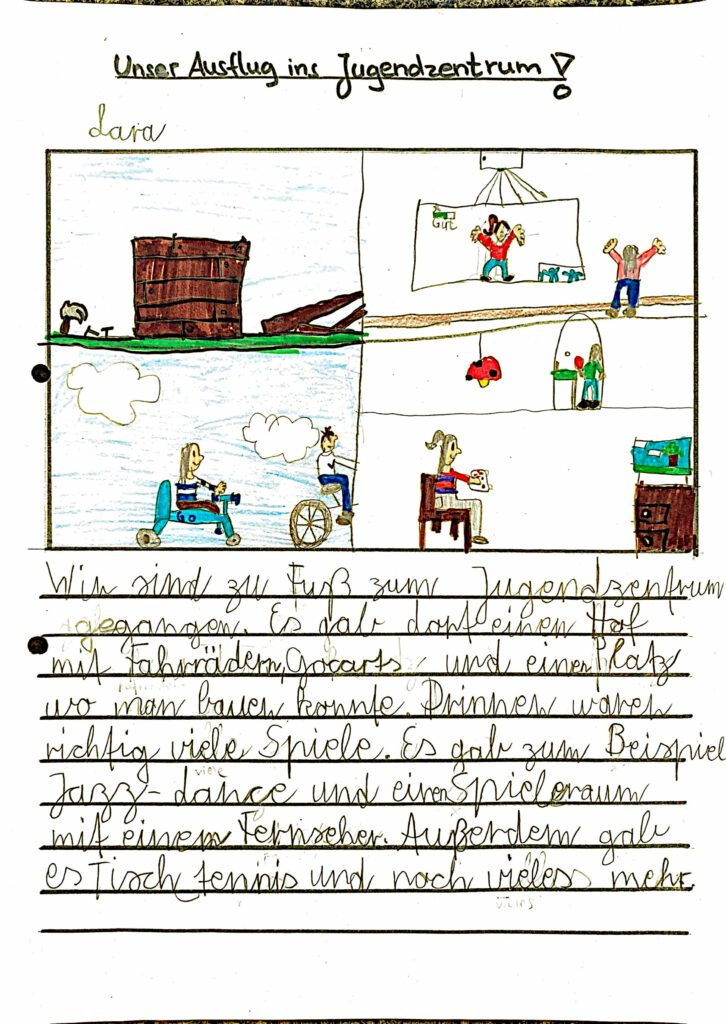 Unser Ausflug ins Jugendzentrum!
Lara
Gut
Wir sind zu Fuß zum Jugendzentrum
gegangen. Es gab dort einen Hof
mit Fahrrädern, Gocarts und einen Platz
wo man bauen konnte. Drinnen waren
richtig viele Spiele. Es gab zum Beispiel
Jazz-dance und einen Spieleraum
mit einem Fernseher. Außerdem gab
es Tisch tennis und noch vieless mehr.